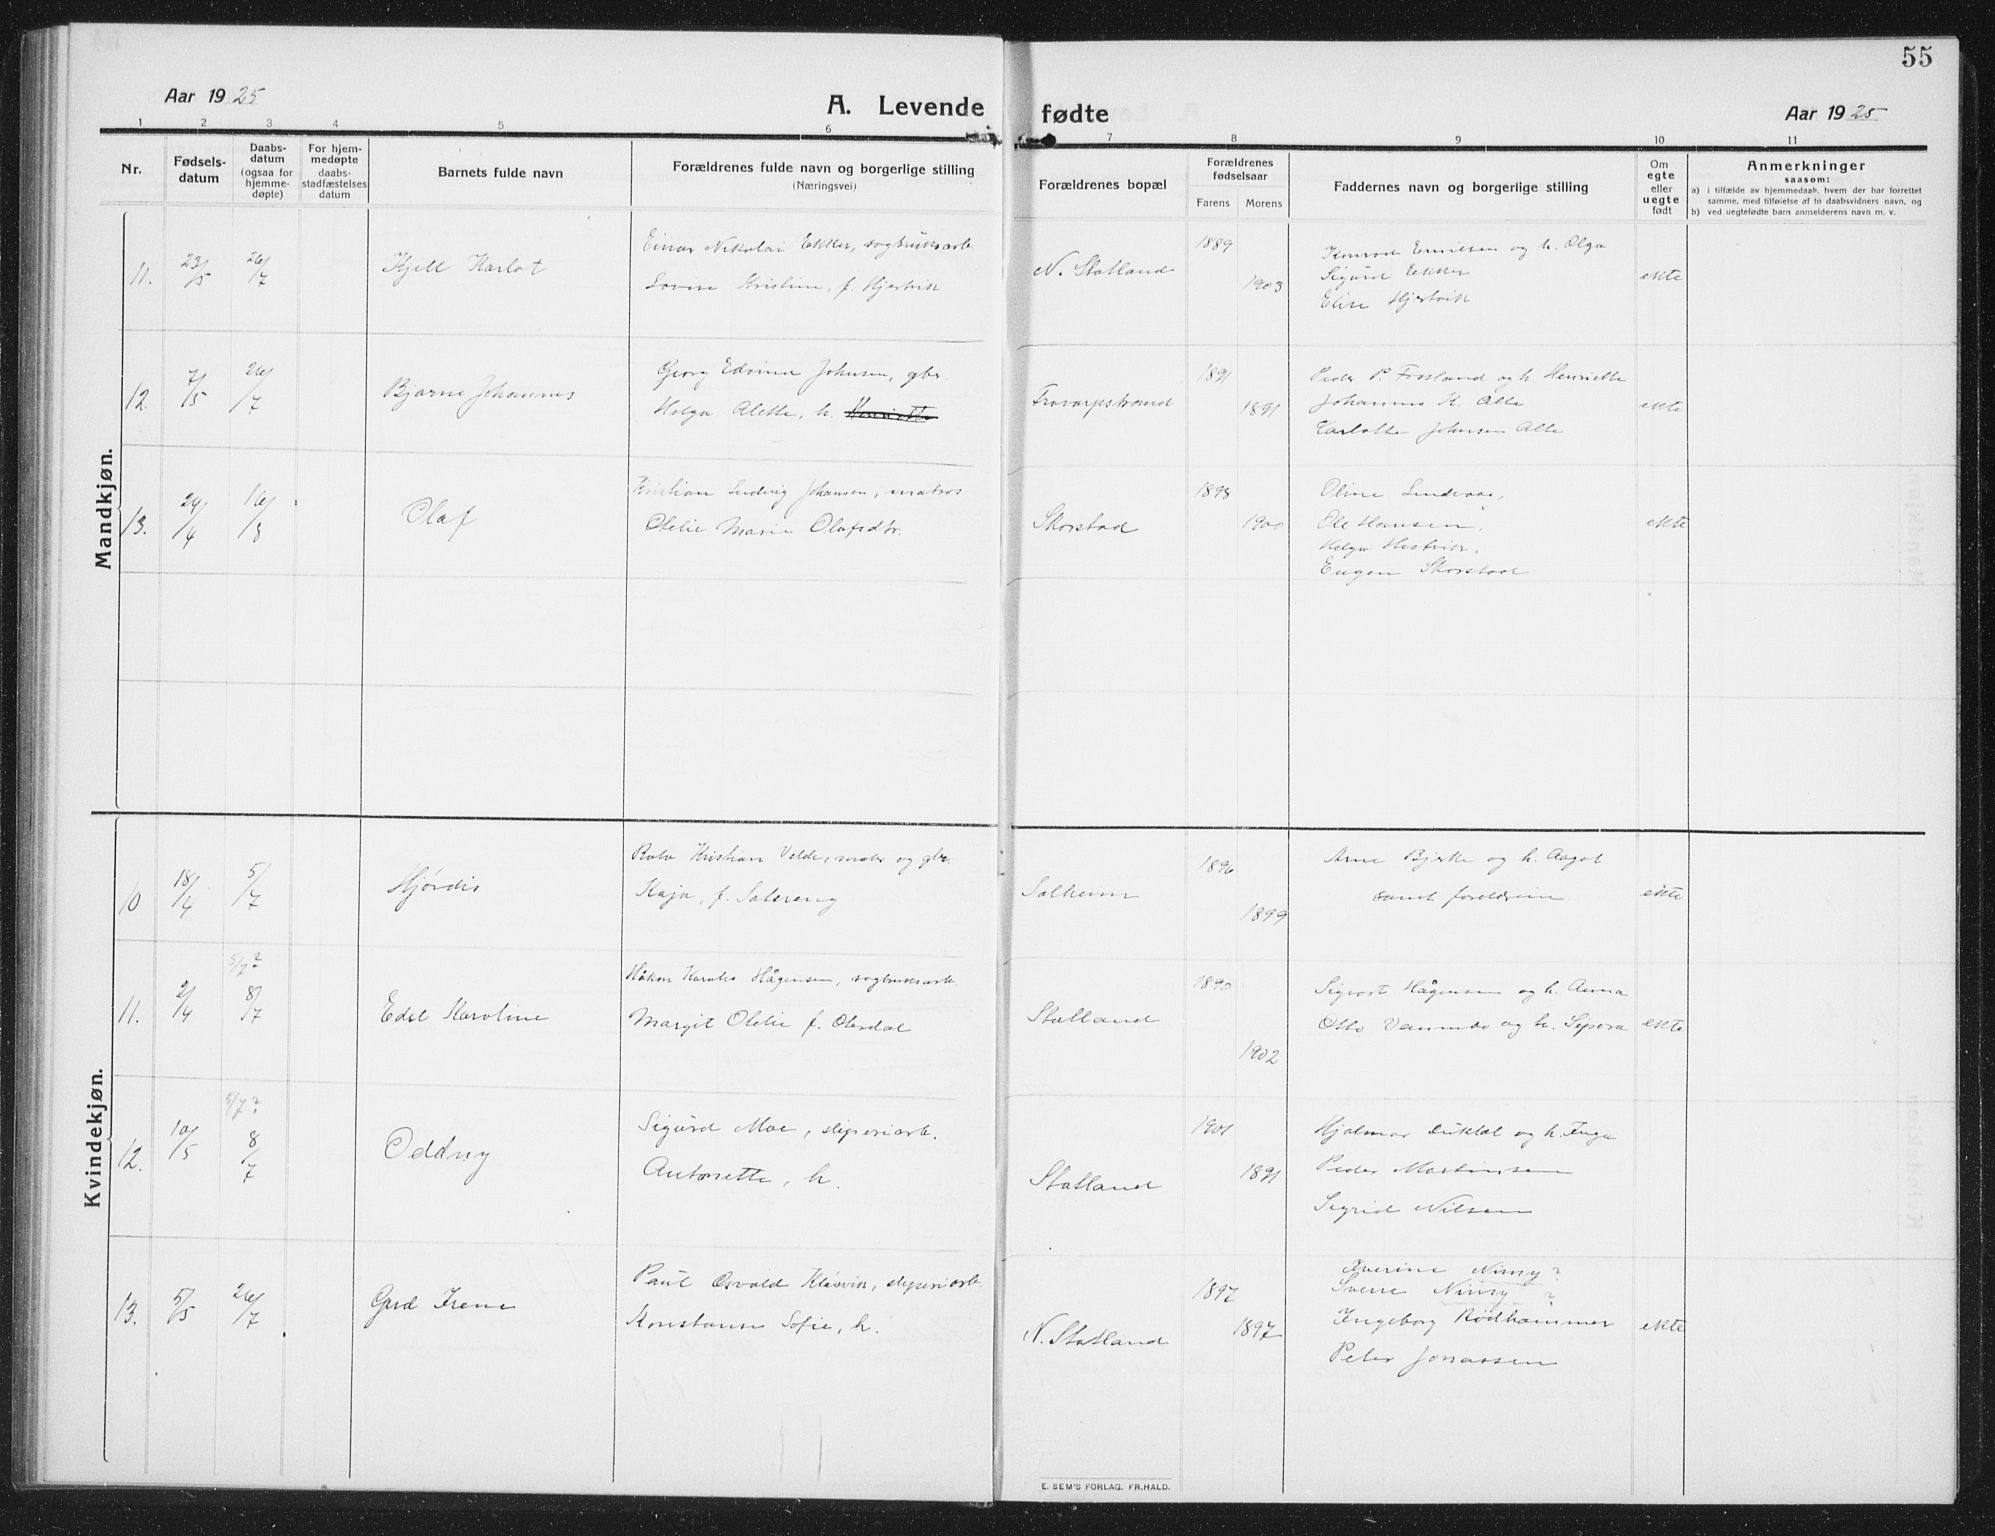 55
Aar 1925
A. Levende fødte
Aar 1925
1 2 3 4 5 6 7 8 9 10 11
Nr.
Fødsels-
datum
Daabs-
datum
(ogsaa for
hjemme-
døpte)
For hjem-
medøpte
daabs-
stadfæstelses
datum
Barnets fulde navn
Forældrenes fulde navn og borgerlige stilling
(Næringsvei)
Forældrenes bopæl
Forældrenes
fødselsaar
Farens Morens
Faddernes navn og borgerlige stilling
Om
egte
eller
uegte
født
Anmerkninger
saasom:
a) i tilfælde av hjemmedaab, hvem der har forrettet
samme, med tilføielse af to daabsvidners navn, og
b) ved uegtefødte barn anmelderens navn m. v.
Mandkjøn.
11. 23/5 26/7 Kjell Karlot
Einar Nikolai Ekker, sagbruksarb.
Lovise Kristine, f. Hjertvik
N. Statland 1889 1903
Konrad Emilsen og h. Olga
Sigurd Ekker
Elise Hjertvik
ekte
12. 7/5 26/7 Bjarne Johannes
Georg Edvind Johnsen, gbr.
Helga Alette, h.
1891 1891
Peder P. Fossland og h. Henriette
Johannes K. Alte
Karlotte Johnsen Alte
ekte
13. 24/4 16/8 Olaf
Kristian Ludvig Johansen, matros
Otelie Marie Olafsdtr.
Skorstad 1898 1900
Oline
Ole Hansen,
Helga Hestvik,
Eugen Skorstad
ekte
Kvindekjøn.
10 18/4 5/7 Hjørdis
Kristian Velde, maler og gbr.
Kaja, f. Setereng
Solheim 1896 1899
Arne Bjerke og h. Aagot
samt foreldrene
ekte
11. 2/4 5/7? 8/7 Edel Karoline
Håkon Hågensen, sagbruksarb.
Margit Otelie f. Olesdal
Statland 1890 1902
Sigvart Hågensen og h. Anna
Otto og h. Sipora
ekte
12. 10/5 5/7? 8/7 Oddny
Sigurd Moe, sliperiarb.
Antonette, h.
Statland 1901 1891
Hjalmar og h. Inga
Peder Martinsen
Sigrid Nilsen
13. 5/5 26/7 Gerd Irene
Paul Osvald Kløvvik, sliperiarb.
Konstanse Sofie, h.
N. Statland 1897 1897
Severine Nimsy?
Sverre Nimsy?
Ingeborg Rødhammer
Peter Jonassen
ekte
E. SEM'S FORLAG. FR.HALD.